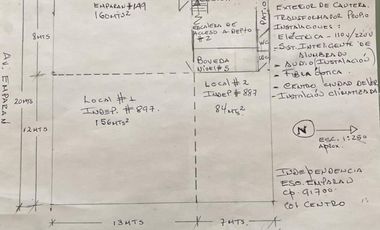 EMPARAN #199
160MTS²
ESCALERA DE
ACCESO A DEPTO
#2
PATIO
EXTERIOR DE CANTERA.
TRANSFORMADOR PROPIO
INSTALACIONES:
ELÉCTRICA - 110V/220V
- SIST. INTELIGENTE DE
ALUMBRADO
- AUDIO INSTALACIÓN
FIBRA ÓPTICA.
- CENTRO CIUDAD DE VER
- INSTALCIÓN CLIMATIZADA
AV. EMPARAN
8MTS
20MTS
12MTS
BOVEDA
NIVEL #5
LOCAL #1
INDEP. #897.
156MTS²
LOCAL #2
INDEP #887
84MTS²
N
ESC. 1:250
APROX.
INDEPENDENCIA
ESQ. EMPARAN
CP. 91700
COL CENTRO
13MTS
7MTS